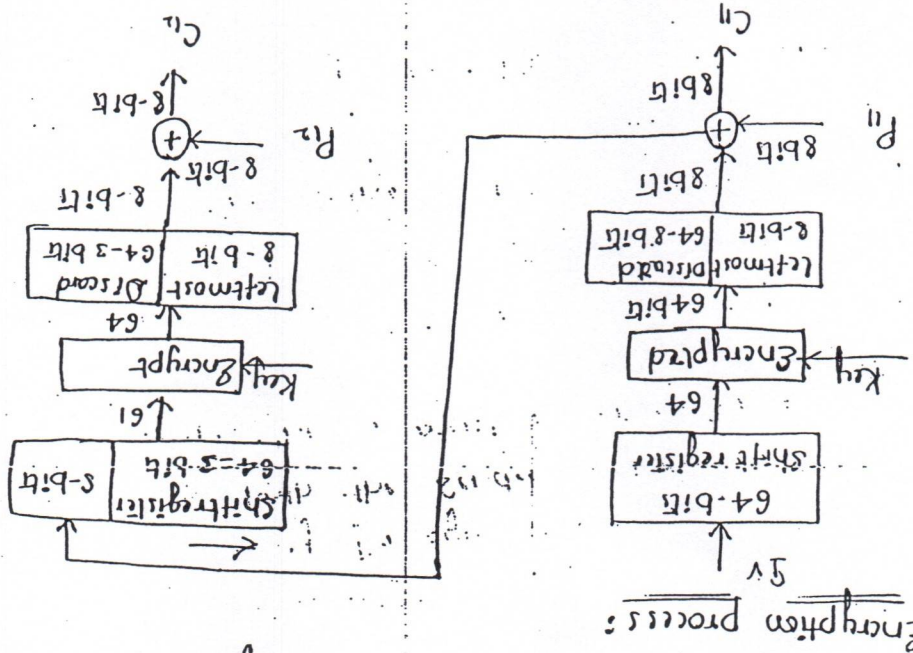 Encryption process:
IV
64-bits
Shift register
64
Key
Encrypted
64bits
Leftmost Discard
8-bits 64-8bits
8bits
P11
8bits
+
8bits
C11
Shiftregister
64-3 bits
8-bits
Key
Encrypt
64
Leftmost Discard
8-bits 64-3 bits
8-bits
P12
8-bits
+
8-bits
C12